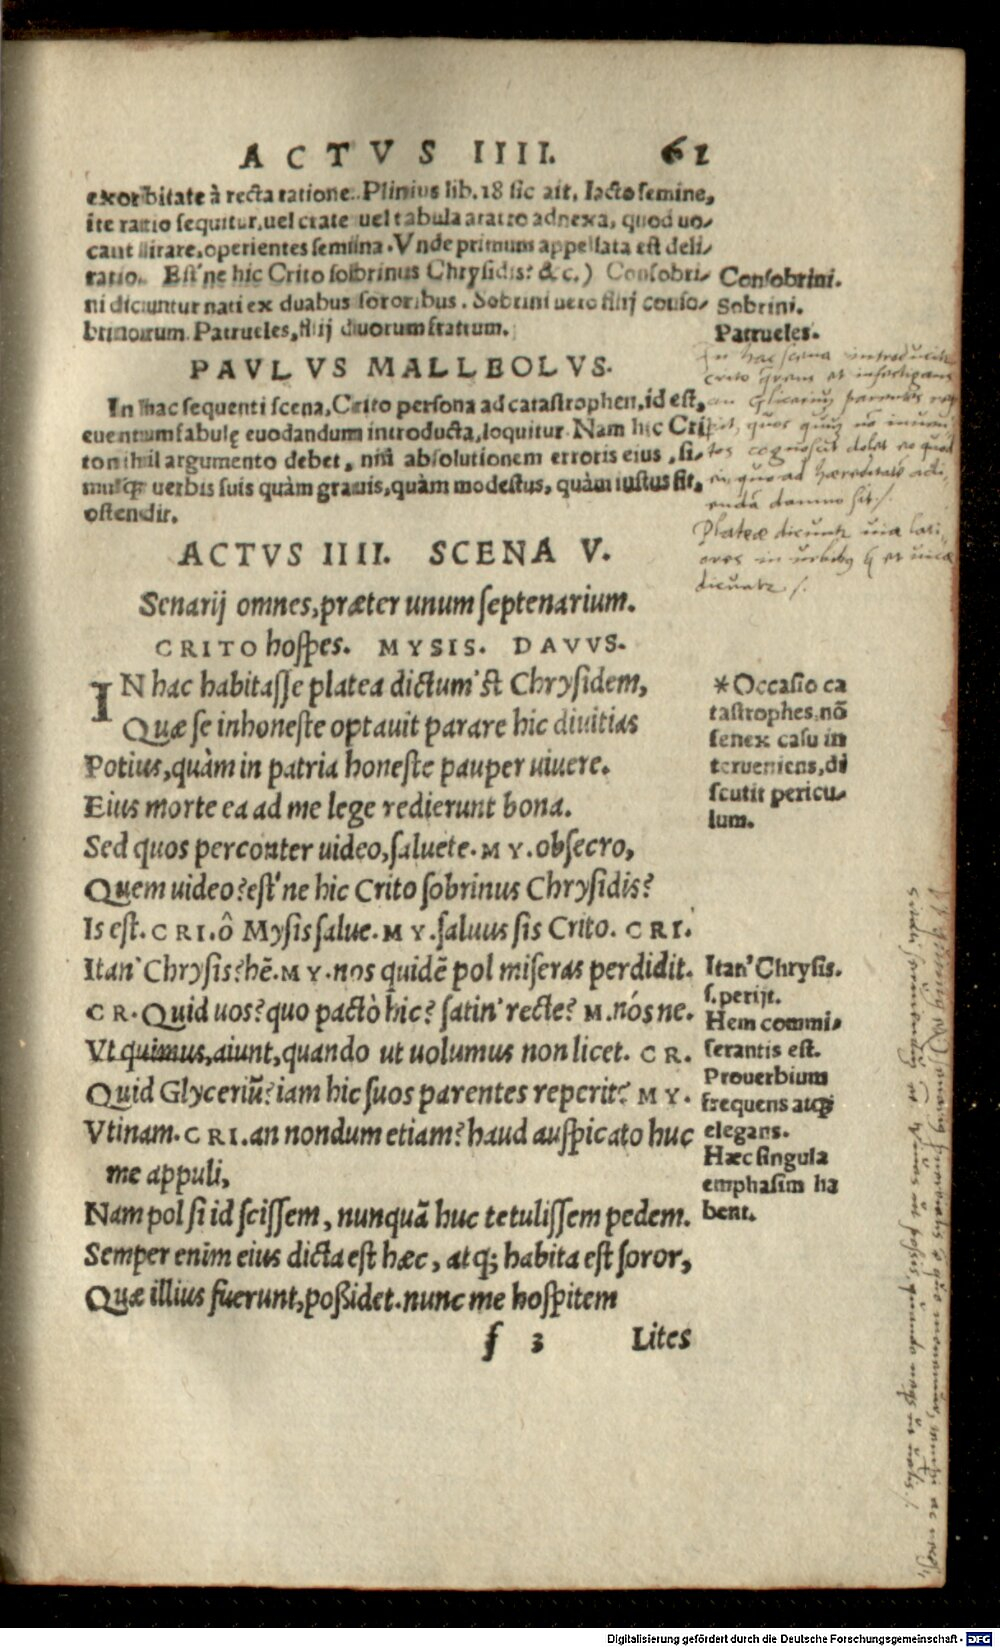 ACTVS IIII. 61
exorbitate à recta ratione. Plinius lib. 18 sic ait, Iacto semine,
ite ratio sequitur, uel crate uel tabula aratro adnexa, quod uo-
cant lirare, operientes semina. Vnde primum appellata est deli-
ratio. Est'ne hic Crito sobrinus Chrysidis? &c.) Consobri-
ni dicuntur nati ex duabus sororibus. Sobrini uero filij conso-
brinorum. Patrueles, filij duorum fratrum.
Consobrini.
Sobrini.
Patrueles.
PAVLVS MALLEOLVS.
In hac sequenti scena, Crito persona ad catastrophen, id est,
euentum fabulę euodandum introducta, loquitur. Nam hic Cri
ton ihil argumento debet, nisi absolutionem erroris eius, si-
mulq; uerbis suis quàm grauis, quàm modestus, quàm iustus sit,
ostendit.
In hac scena introducitur
Plateæ dicuntur uiæ lati-
ores in urbibus
dicuntur
ACTVS IIII. SCENA V.
Senarij omnes, præter unum septenarium.
CRITO hospes. MYSIS. DAVVS.
IN hac habitasse platea dictum'st Chrysidem,
Quæ se inhoneste optauit parare hic diuitias
Potius, quàm in patria honeste pauper uiuere.
Eius morte ea ad me lege redierunt bona.
Sed quos perconter uideo, saluete. MY. obsecro,
Quem uideo? est'ne hic Crito sobrinus Chrysidis?
Is est. CRI. ô Mysis salue. MY. saluus sis Crito. CRI.
Itan' Chrysis? hē. MY. nos quidē pol miseras perdidit.
CR. Quid uos? quo pactò hic? satin' recte? M. nós ne.
Vt quimus, aiunt, quando ut uolumus non licet. CR.
Quid Glyceriū? iam hic suos parentes reperit? MY.
Vtinam. CRI. an nondum etiam? haud auspicato huc
me appuli,
Nam pol si id scissem, nunquā huc tetulissem pedem.
Semper enim eius dicta est hæc, atq; habita est soror,
Quæ illius fuerunt, poßidet. nunc me hospitem
*Occasio ca
tastrophes, nō
senex casu in
terueniens, di
scutit pericu-
lum.
Itan' Chrysis.
s. perijt.
Hem commi-
serantis est.
Prouerbium
frequens atq;
elegans.
Hæc singula
emphasim ha
bent.
f 3 Lites
Digitalisierung gefördert durch die Deutsche Forschungsgemeinschaft - DFG